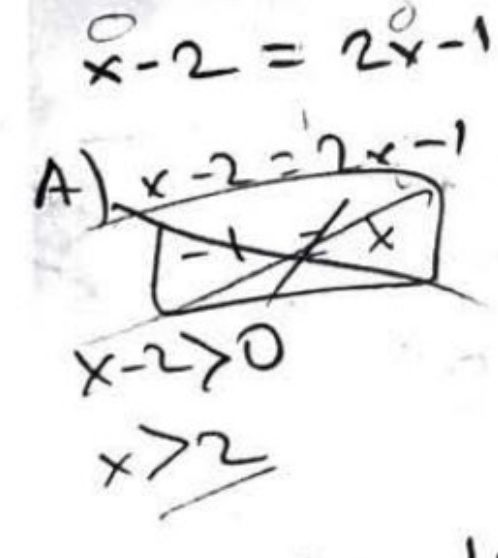 x-2 = 2x-1
A) x-2=2x-1
-1 = x
x-2>0
x>2